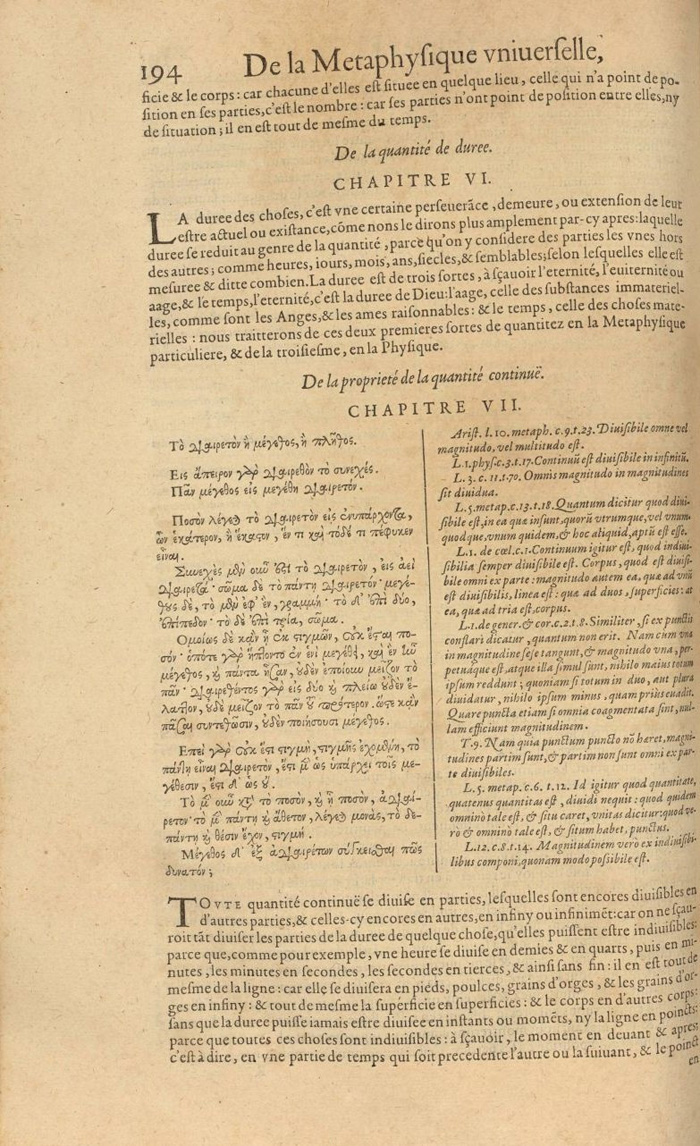 194 De la Metaphyſique vniuerſelle,
ficie & le corps : car chacune d'elles eſt ſituee en quelque lieu, celle qui n'a point de po-
ſition en ſes parties, c'eſt le nombre : car ſes parties n'ont point de poſition entre elles, ny
de ſituation ; il en eſt tout de meſme du temps.
De la quantité de duree.
CHAPITRE VI.
LA duree des choſes, c'eſt vne certaine perſeuerãce, demeure, ou extenſion de leur
eſtre actuel ou exiſtance, cõme nons le dirons plus amplement par-cy apres : laquelle
duree ſe reduit au genre de la quantité, parce qu'on y conſidere des parties les vnes hors
des autres ; comme heures, iours, mois, ans, ſiecles, & ſemblables ; ſelon leſquelles elle eſt
meſuree & ditte combien. La duree eſt de trois ſortes, à ſçauoir l'eternité, l'euiternité ou
aage, & le temps, l'eternité, c'eſt la duree de Dieu : l'aage, celle des ſubſtances immateriel-
les, comme ſont les Anges, & les ames raiſonnables : & le temps, celle des choſes mate-
rielles : nous traitterons de ces deux premieres ſortes de quantitez en la Metaphyſique
particuliere, & de la troiſieſme, en la Phyſique.
De la proprieté de la quantité continuë.
CHAPITRE VII.
Τὸ διαιρετὸν ἢ μέγεθος, ἢ πλῆθος.
Εἰς ἄπειρον γὰρ διαιρεθὸν τὸ συνεχές.
Πᾶν μέγεθος εἰς μεγέθη διαιρετόν.
Ποσὸν λέγεται τὸ διαιρετὸν εἰς ἐνυπάρχοντα,
ὧν ἑκάτερον, ἢ ἕκαστον, ἕν τι καὶ τόδε τι πέφυκεν
εἶναι.
Συνεχὲς μὲν οὖν ἐστὶ τὸ διαιρετὸν, εἰς ἀεὶ
διαιρετά· σῶμα δὲ τὸ πάντη διαιρετόν· μεγέ-
θους δὲ, τὸ μὲν ἐφ' ἓν, γραμμή· τὸ δ' ἐπὶ δύο,
ἐπίπεδον· τὸ δὲ ἐπὶ τρία, σῶμα.
Ὁμοίως δὲ κἂν ᾖ ἐκ στιγμῶν, οὐκ ἔσται πο-
σόν· ὁπότε γὰρ ἥπτοντο ἓν ἑνὶ μεγέθει, καὶ ἓν ἦν
μέγεθος, καὶ πάντα ἦσαν, οὐδὲν ἐποίουν μεῖζον τὸ
πᾶν· διαιρεθέντος γὰρ εἰς δύο καὶ πλείω οὐδὲν ἔ-
λαττον, οὐδὲ μεῖζον τὸ πᾶν τοῦ πρότερον. ὥστε κἂν
πᾶσαι συντεθῶσιν, οὐδὲν ποιήσουσι μέγεθος.
Ἐπεὶ γὰρ οὐκ ἔστι στιγμὴ, στιγμῆς ἐχομένη, τὸ
πάντη εἶναι διαιρετὸν, ἔστι μὲν ὡς ὑπάρχει τοῖς με-
γέθεσιν, ἔστι δ' ὡς οὔ.
Τὸ μὲν οὖν κατὰ τὸ ποσὸν, καὶ ᾗ ποσὸν, ἀδιαί-
ρετον· τὸ μὲν πάντη καὶ ἄθετον, λέγεται μονάς, τὸ δὲ-
πάντη καὶ θέσιν ἔχον, στιγμή.
Μέγεθος δ' ἐξ ἀδιαιρέτων συγκεῖσθαι πῶς
δυνατόν ;
Ariſt. l. 10. metaph. c. 9. t. 23. Diuiſibile omne vel
magnitudo, vel multitudo eſt.
L. 1. phyſ. c. 3. t. 17. Continuũ eſt diuiſibile in infinitũ.
L. 3. c. 11. t. 70. Omnis magnitudo in magnitudines
ſit diuidua.
L. 5. metap. c. 13. t. 18. Quantum dicitur quod diui-
ſibile eſt, in ea quæ inſunt, quorũ vtrumque, vel vnum-
quodque, vnum quidem, & hoc aliquid, aptũ eſt eſſe.
L. 1. de cœl. c. 1. Continuum igitur eſt, quod indiui-
ſibilia ſemper diuiſibile eſt. Corpus, quod eſt diuiſi-
bile omni ex parte : magnitudo autem ea, quæ ad vnũ
eſt diuiſibilis, linea eſt : quæ ad duos, ſuperficies : at
ea, quæ ad tria eſt, corpus.
L. 1. de gener. & cor. c. 2. t. 8. Similiter, ſi ex punctis
conſtari dicatur, quantum non erit. Nam cum vna
in magnitudine ſeſe tangunt, & magnitudo vna, per-
petuáque eſt, atque illa ſimul ſunt, nihilo maius totum
ipſum reddunt ; quoniam ſi totum in duo, aut plura
diuidatur, nihilo ipſum minus, quam prius euadit.
Quare puncta etiam ſi omnia coagmentata ſint, nul-
lam efficiunt magnitudinem.
T. 9. Nam quia punctum puncto nõ hæret, magni-
tudines partim ſunt, & partim non ſunt omni ex par-
te diuiſibiles.
L. 5. metap. c. 6. t. 12. Id igitur quod quantitate,
quatenus quantitas eſt, diuidi nequit : quod quidem
omnino tale eſt, & ſitu caret, vnitas dicitur : quod ve-
rò & omnino tale eſt, & ſitum habet, punctus.
L. 12. c. 8. t. 14. Magnitudinem vero ex indiuiſibi-
libus componi, quonam modo poſſibile eſt.
TOVTE quantité continuë ſe diuiſe en parties, leſquelles ſont encores diuiſibles en
d'autres parties, & celles-cy encores en autres, en infiny ou infinimẽt : car on ne ſçau-
roit tãt diuiſer les parties de la duree de quelque choſe, qu'elles puiſſent eſtre indiuiſibles :
parce que, comme pour exemple, vne heure ſe diuiſe en demies & en quarts, puis en mi-
nutes, les minutes en ſecondes, les ſecondes en tierces, & ainſi ſans fin : il en eſt tout de
meſme de la ligne : car elle ſe diuiſera en pieds, poulces, grains d'orges, & les grains d'or-
ges en infiny : & tout de meſme la ſuperficie en ſuperficies : & le corps en d'autres corps :
ſans que la duree puiſſe iamais eſtre diuiſee en inſtants ou momẽts, ny la ligne en poincts :
parce que toutes ces choſes ſont indiuiſibles : à ſçauoir, le moment en deuant & apres :
c'eſt à dire, en vne partie de temps qui ſoit precedente l'autre ou la ſuiuant, & le poinct
en